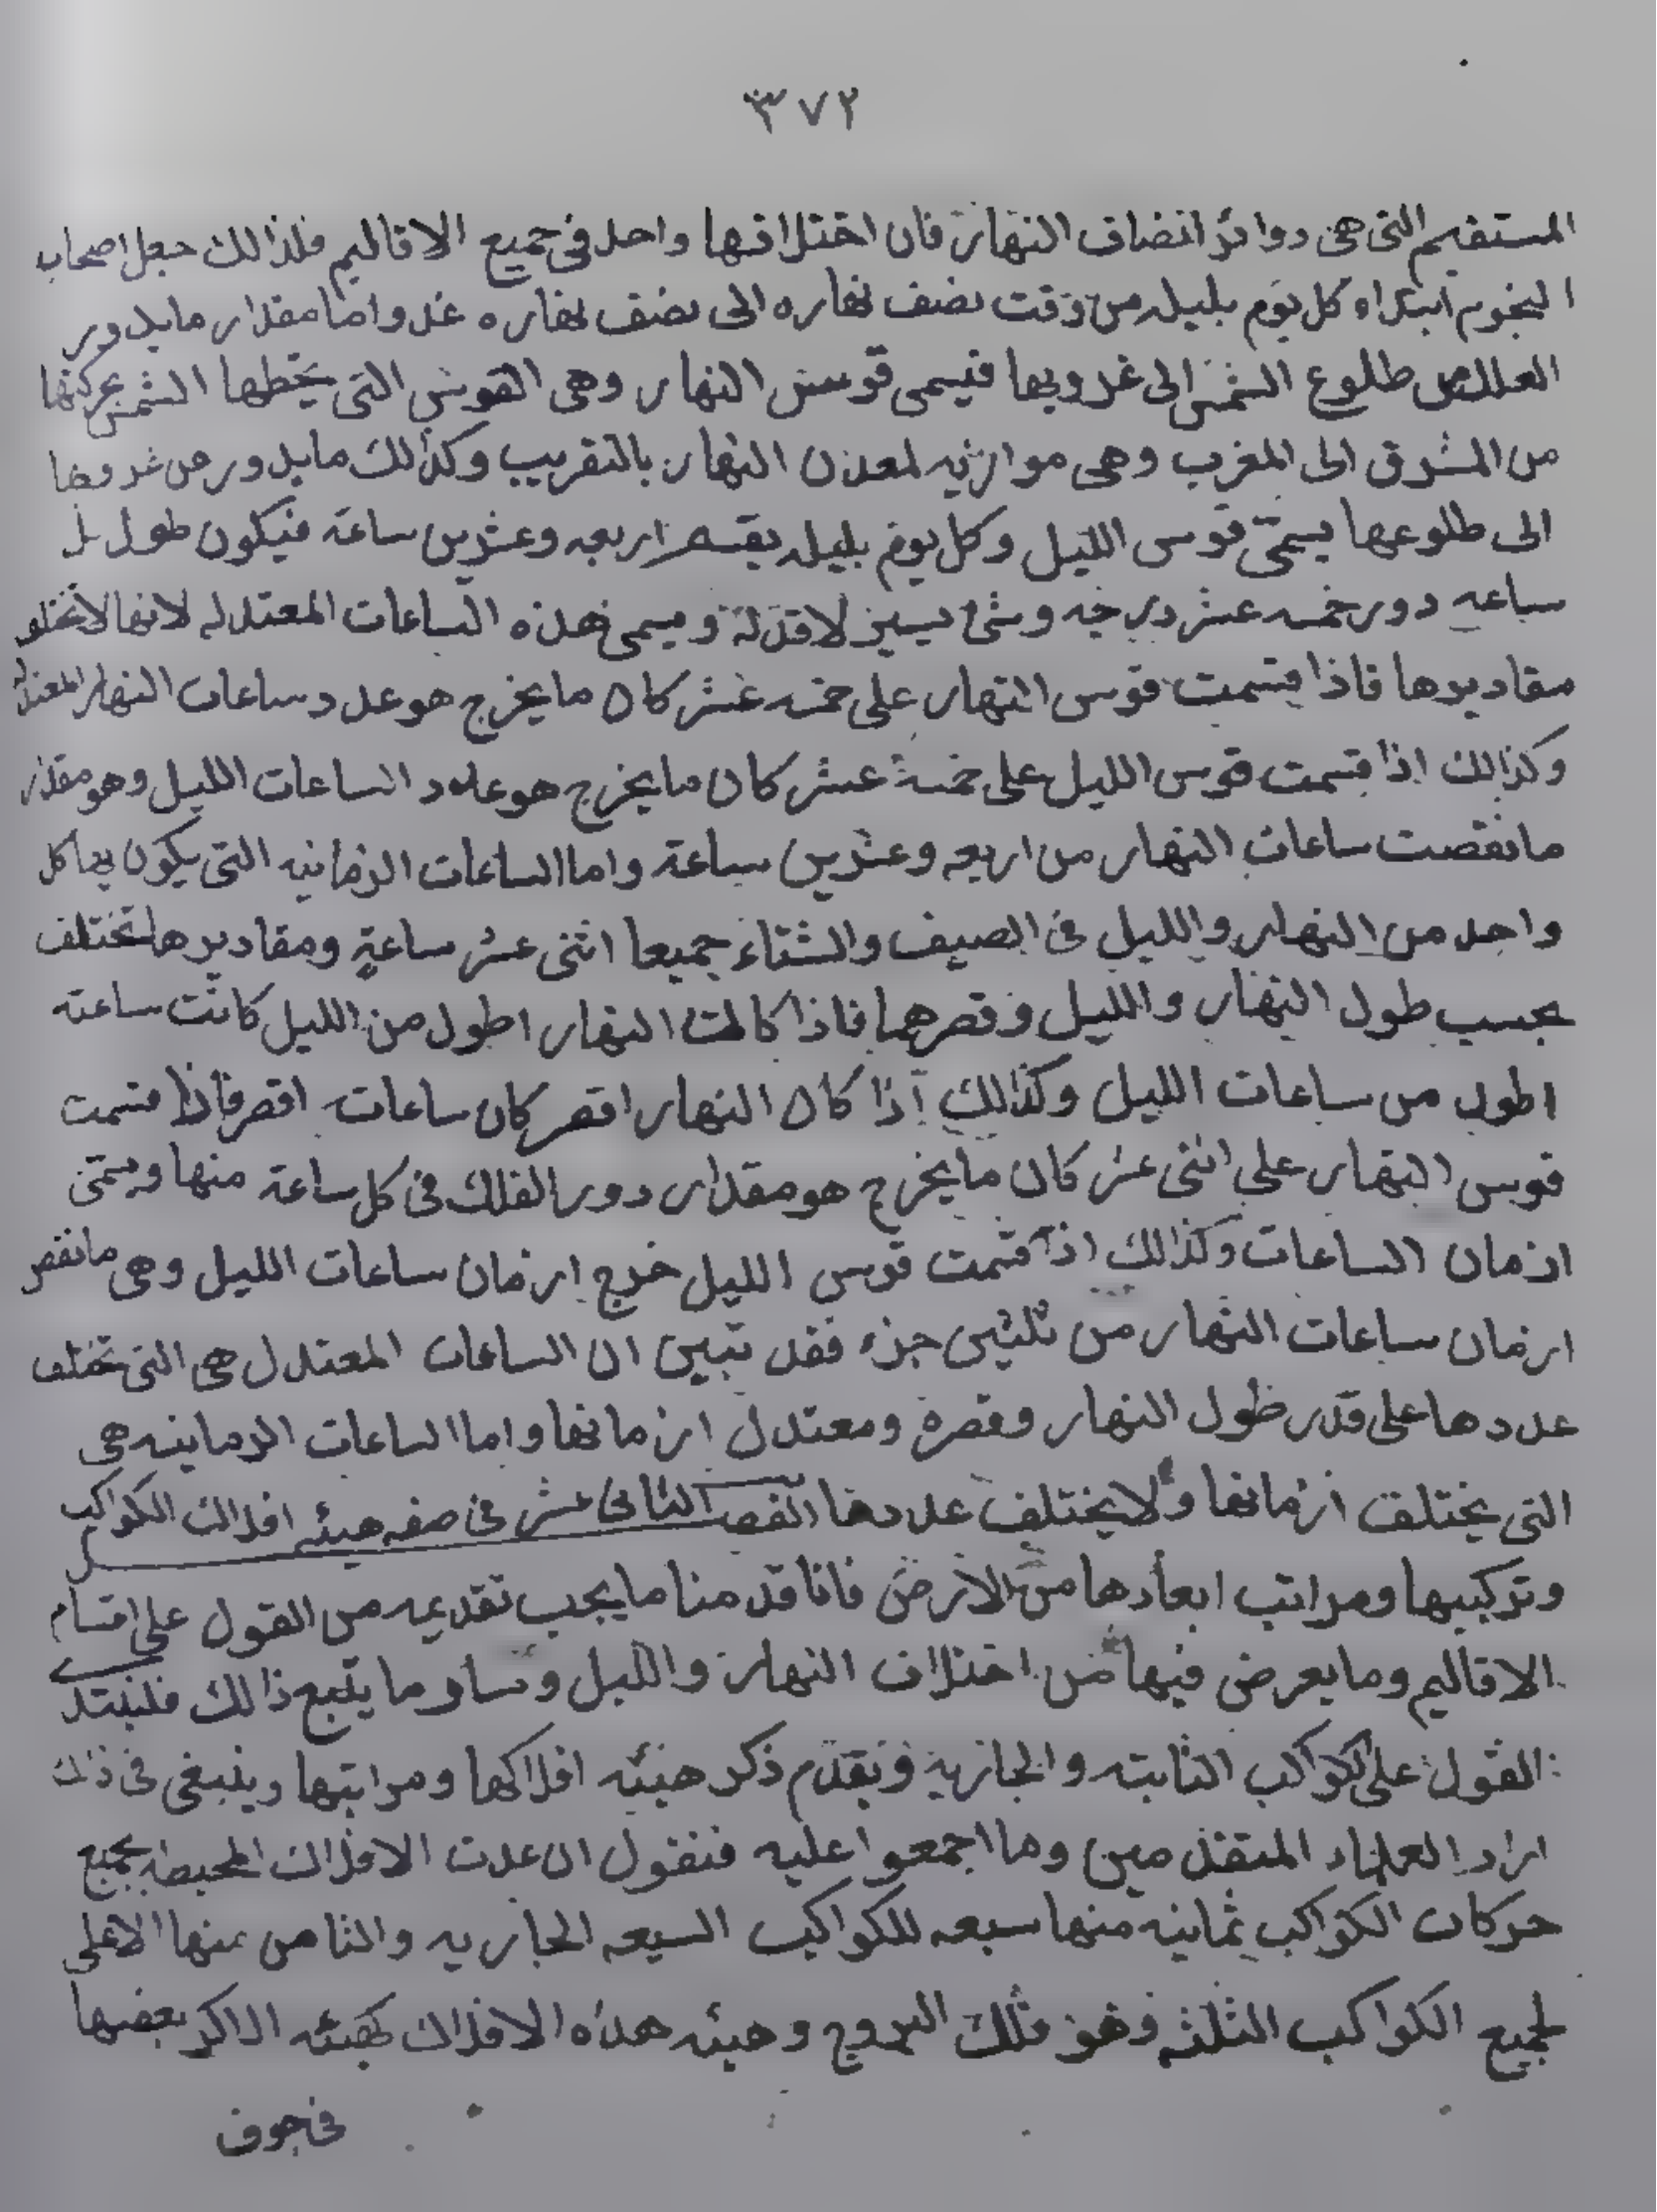 ٣٧٢
المستقيم التى هى دوائر انصاف النهار فان اختلافها واحد فى جميع الاقاليم فلذالك جعل اصحاب
النجوم ابتداء كل يوم بليله من وقت نصف نهاره الى نصف نهاره غد واما مقدار ما يدور
الفلك من طلوع الشمس الى غروبها فيسمى قوس النهار وهى القوس التى يخطها الشمس بحركتها
من المشرق الى المغرب وهى موازيه لمعدل النهار بالتقريب وكذالك ما يدور من غروبها
الى طلوعها يسمى قوس الليل وكل يوم بليله يقسم اربعه وعشرين ساعة فيكون طول
ساعه دور خمسه عشر درجه وشئ يسير لا قدر له ويسمى هذه الساعات المعتدله لانها لا تختلف
مقاديرها فاذا قسمت قوس النهار على خمسه عشر كان ما يخرج هو عدد ساعات النهار المعتدله
وكذالك اذا قسمت قوس الليل على خمسة عشر كان ما يخرج هو عدد الساعات الليل وهو مقدار
ما نقصت ساعات النهار من اربعه وعشرين ساعة واما الساعات الزمانيه التى يكون بها كل
واحد من النهار والليل فى الصيف والشتاء جميعا اثنى عشر ساعةٍ ومقاديرها تختلف
بحسب طول النهار والليل وقصرهما فاذا كانت النهار اطول من الليل كانت ساعته
اطول من ساعات الليل وكذالك اذا كان النهار اقصر كان ساعاته اقصر فاذا قسمت
قوس النهار على اثنى عشر كان ما يخرج هو مقدار دور الفلك فى كل ساعة منها ويسمى
ازمان الساعات وكذالك اذا قسمت قوس الليل خرج ازمان ساعات الليل وهى ما نقص
ازمان ساعات النهار من ثلثين جزء فقد تبين ان الساعات المعتدل هى التى تختلف
عددها على قدر طول النهار وقصره ومعتدل ازمانها واما الساعات الزمانيه هى
التى يختلف ازمانها ولا يختلف عددها الفصل الثانى عشر فى صفه هيئه افلاك الكواكب
وتركيبها ومراتب ابعادها من الارض فانا قدمنا ما يجب تقديمه من القول على اقسام
الاقاليم وما يعرض فيها من اختلاف النهار والليل وساير ما يتبع ذالك فلنبتدى
القول على الكواكب الثابته والجاريه ونقدم ذكر هيئه افلاكها ومراتبها وينبغى فى ذلك
اراد العلماء المتقدمين وما اجمعوا عليه فنقول ان عدت الافلاك المحيطه بجميع
حركات الكواكب ثمانيه منها سبعه للكواكب السبعه الجاريه والثامن منها الاعلى
لجميع الكواكب الثلثه وهو فلك البروج وهيئه هذه الافلاك كهيئه الاكر بعضها
فى جوف